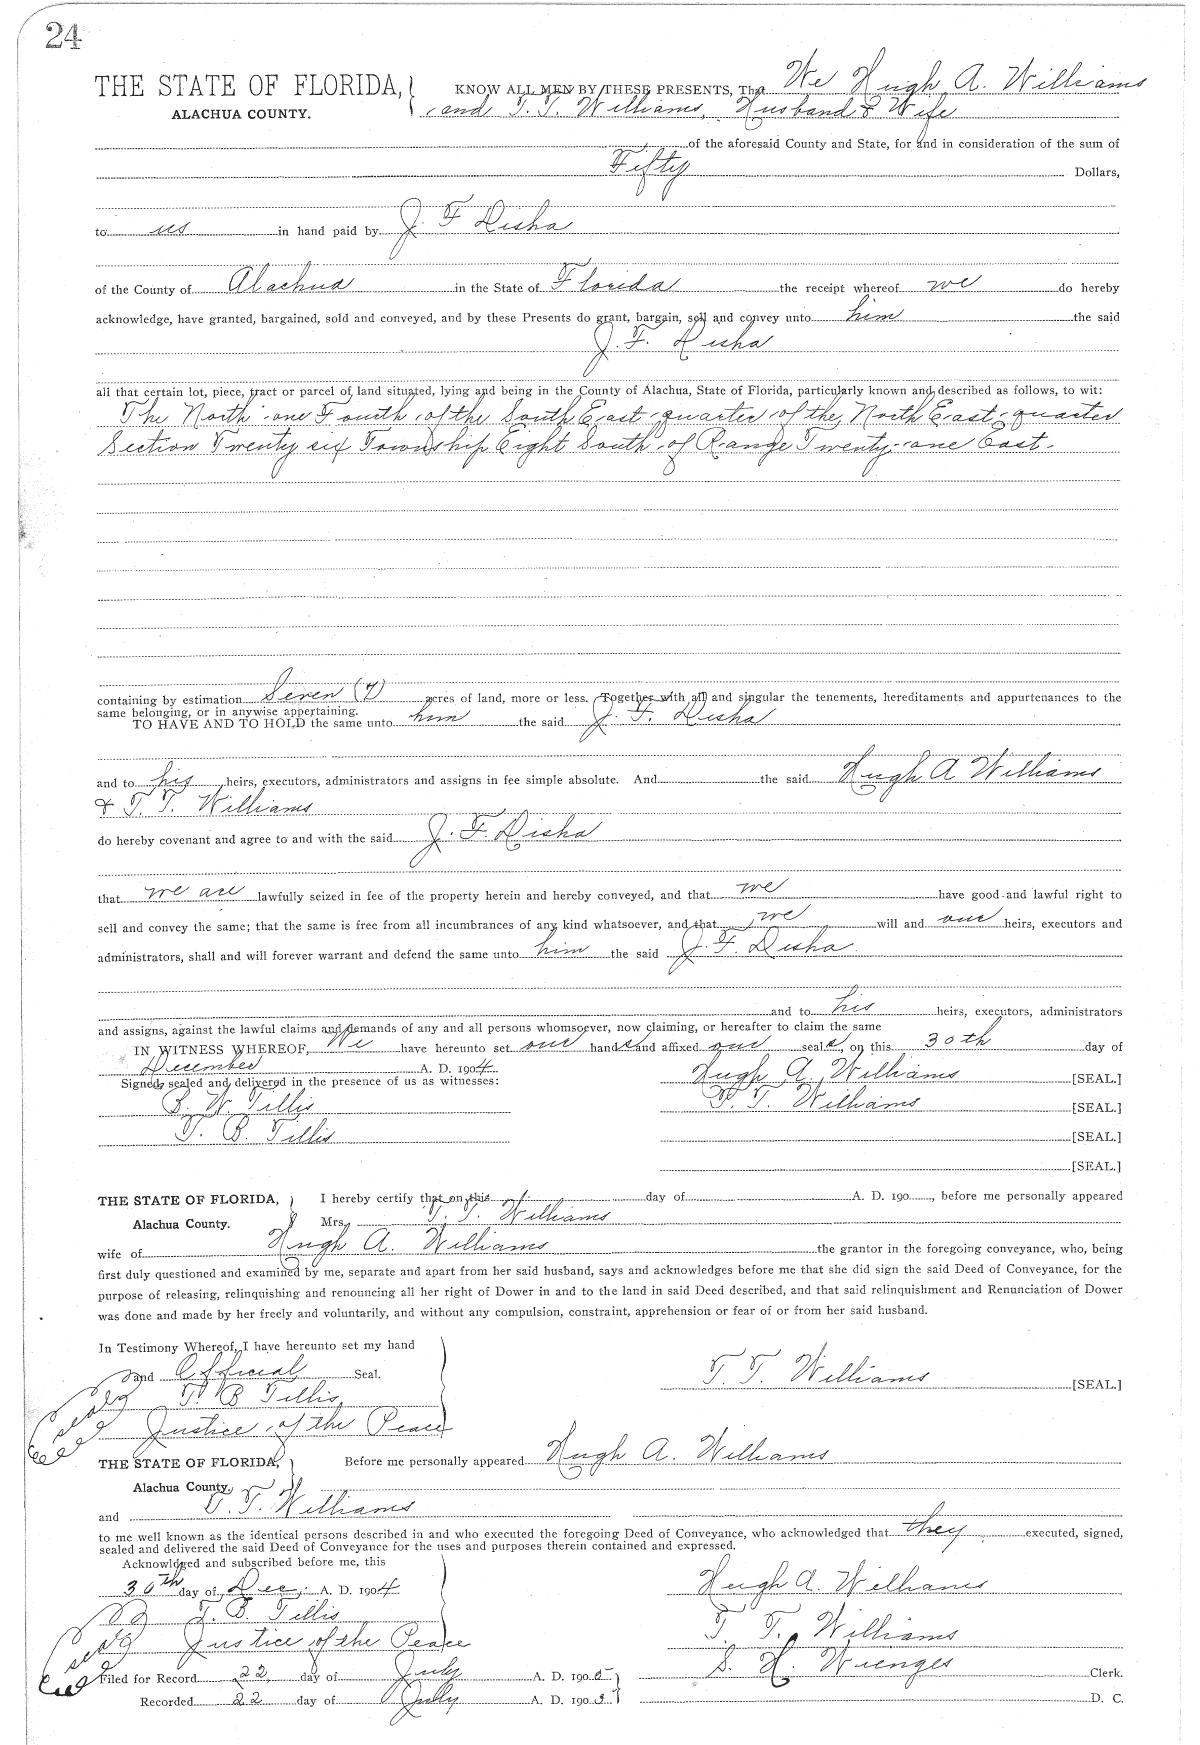 24
THE STATE OF FLORIDA, KNOW ALL MEN BY THESE PRESENTS, That We Hugh A. Williams
ALACHUA COUNTY. and T. T. Williams, Husband & Wife
of the aforesaid County and State, for and in consideration of the sum of
Fifty Dollars,
to us in hand paid by J. F Disha
of the County of Alachua in the State of Florida the receipt whereof we do hereby
acknowledge, have granted, bargained, sold and conveyed, and by these Presents do grant, bargain, sell and convey unto him the said
J. F. Disha
all that certain lot, piece, tract or parcel of land situated, lying and being in the County of Alachua, State of Florida, particularly known and described as follows, to wit:
The North one Fourth of the South East quarter of the North East quarter
Section Twenty six Township Eight South of Range Twenty one East.
containing by estimation Seven (7) acres of land, more or less. Together with all and singular the tenements, hereditaments and appurtenances to the
same belonging, or in anywise appertaining.
TO HAVE AND TO HOLD the same unto him the said J. F. Disha
and to his heirs, executors, administrators and assigns in fee simple absolute. And the said Hugh A Williams
& T. T. Williams
do hereby covenant and agree to and with the said J. F. Disha
that we are lawfully seized in fee of the property herein and hereby conveyed, and that we have good and lawful right to
sell and convey the same; that the same is free from all incumbrances of any kind whatsoever, and that we will and our heirs, executors and
administrators, shall and will forever warrant and defend the same unto him the said J. F. Disha
and to his heirs, executors, administrators
and assigns, against the lawful claims and demands of any and all persons whomsoever, now claiming, or hereafter to claim the same
IN WITNESS WHEREOF, We have hereunto set our hands and affixed our seals, on this 30th day of
December A. D. 1904 Hugh A. Williams [SEAL.]
Signed, sealed and delivered in the presence of us as witnesses:
B. W. Tillis T. T. Williams [SEAL.]
T. B. Tillis [SEAL.]
[SEAL.]
THE STATE OF FLORIDA, I hereby certify that on this day of A. D. 190 , before me personally appeared
Alachua County. Mrs. T. T. Williams
wife of Hugh A. Williams the grantor in the foregoing conveyance, who, being
first duly questioned and examined by me, separate and apart from her said husband, says and acknowledges before me that she did sign the said Deed of Conveyance, for the
purpose of releasing, relinquishing and renouncing all her right of Dower in and to the land in said Deed described, and that said relinquishment and Renunciation of Dower
was done and made by her freely and voluntarily, and without any compulsion, constraint, apprehension or fear of or from her said husband.
In Testimony Whereof, I have hereunto set my hand
and Official Seal. T. T. Williams [SEAL.]
seal T. B Tillis
Justice of the Peace
THE STATE OF FLORIDA, Before me personally appeared Hugh A. Williams
Alachua County.
and T. T. Williams
to me well known as the identical persons described in and who executed the foregoing Deed of Conveyance, who acknowledged that they executed, signed,
sealed and delivered the said Deed of Conveyance for the uses and purposes therein contained and expressed.
Acknowldged and subscribed before me, this
30th day of Dec. A. D. 1904 Hugh A. Williams
T. B. Tillis T. T. Williams
seal Justice of the Peace
Filed for Record 22 day of July A. D. 1905 S. H. Wienges Clerk.
Recorded 22 day of July A. D. 1905 D. C.